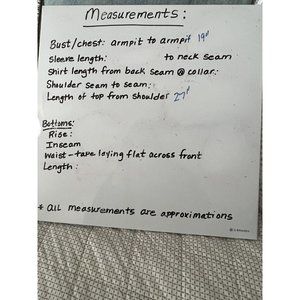 Measurements:
Bust/chest: armpit to armpit 19"
Sleeve length: to neck seam
Shirt length from back seam @ collar:
Shoulder seam to seam:
Length of top from shoulder 27"
Bottoms:
Rise:
Inseam
Waist - tape laying flat across front
Length:
* All measurements are approximations